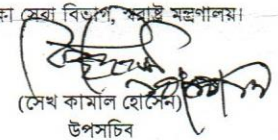 সেবা বিভাগ, স্বরাষ্ট্র মন্ত্রণালয়।
(সেখ কামাল হোসেন)
উপসচিব